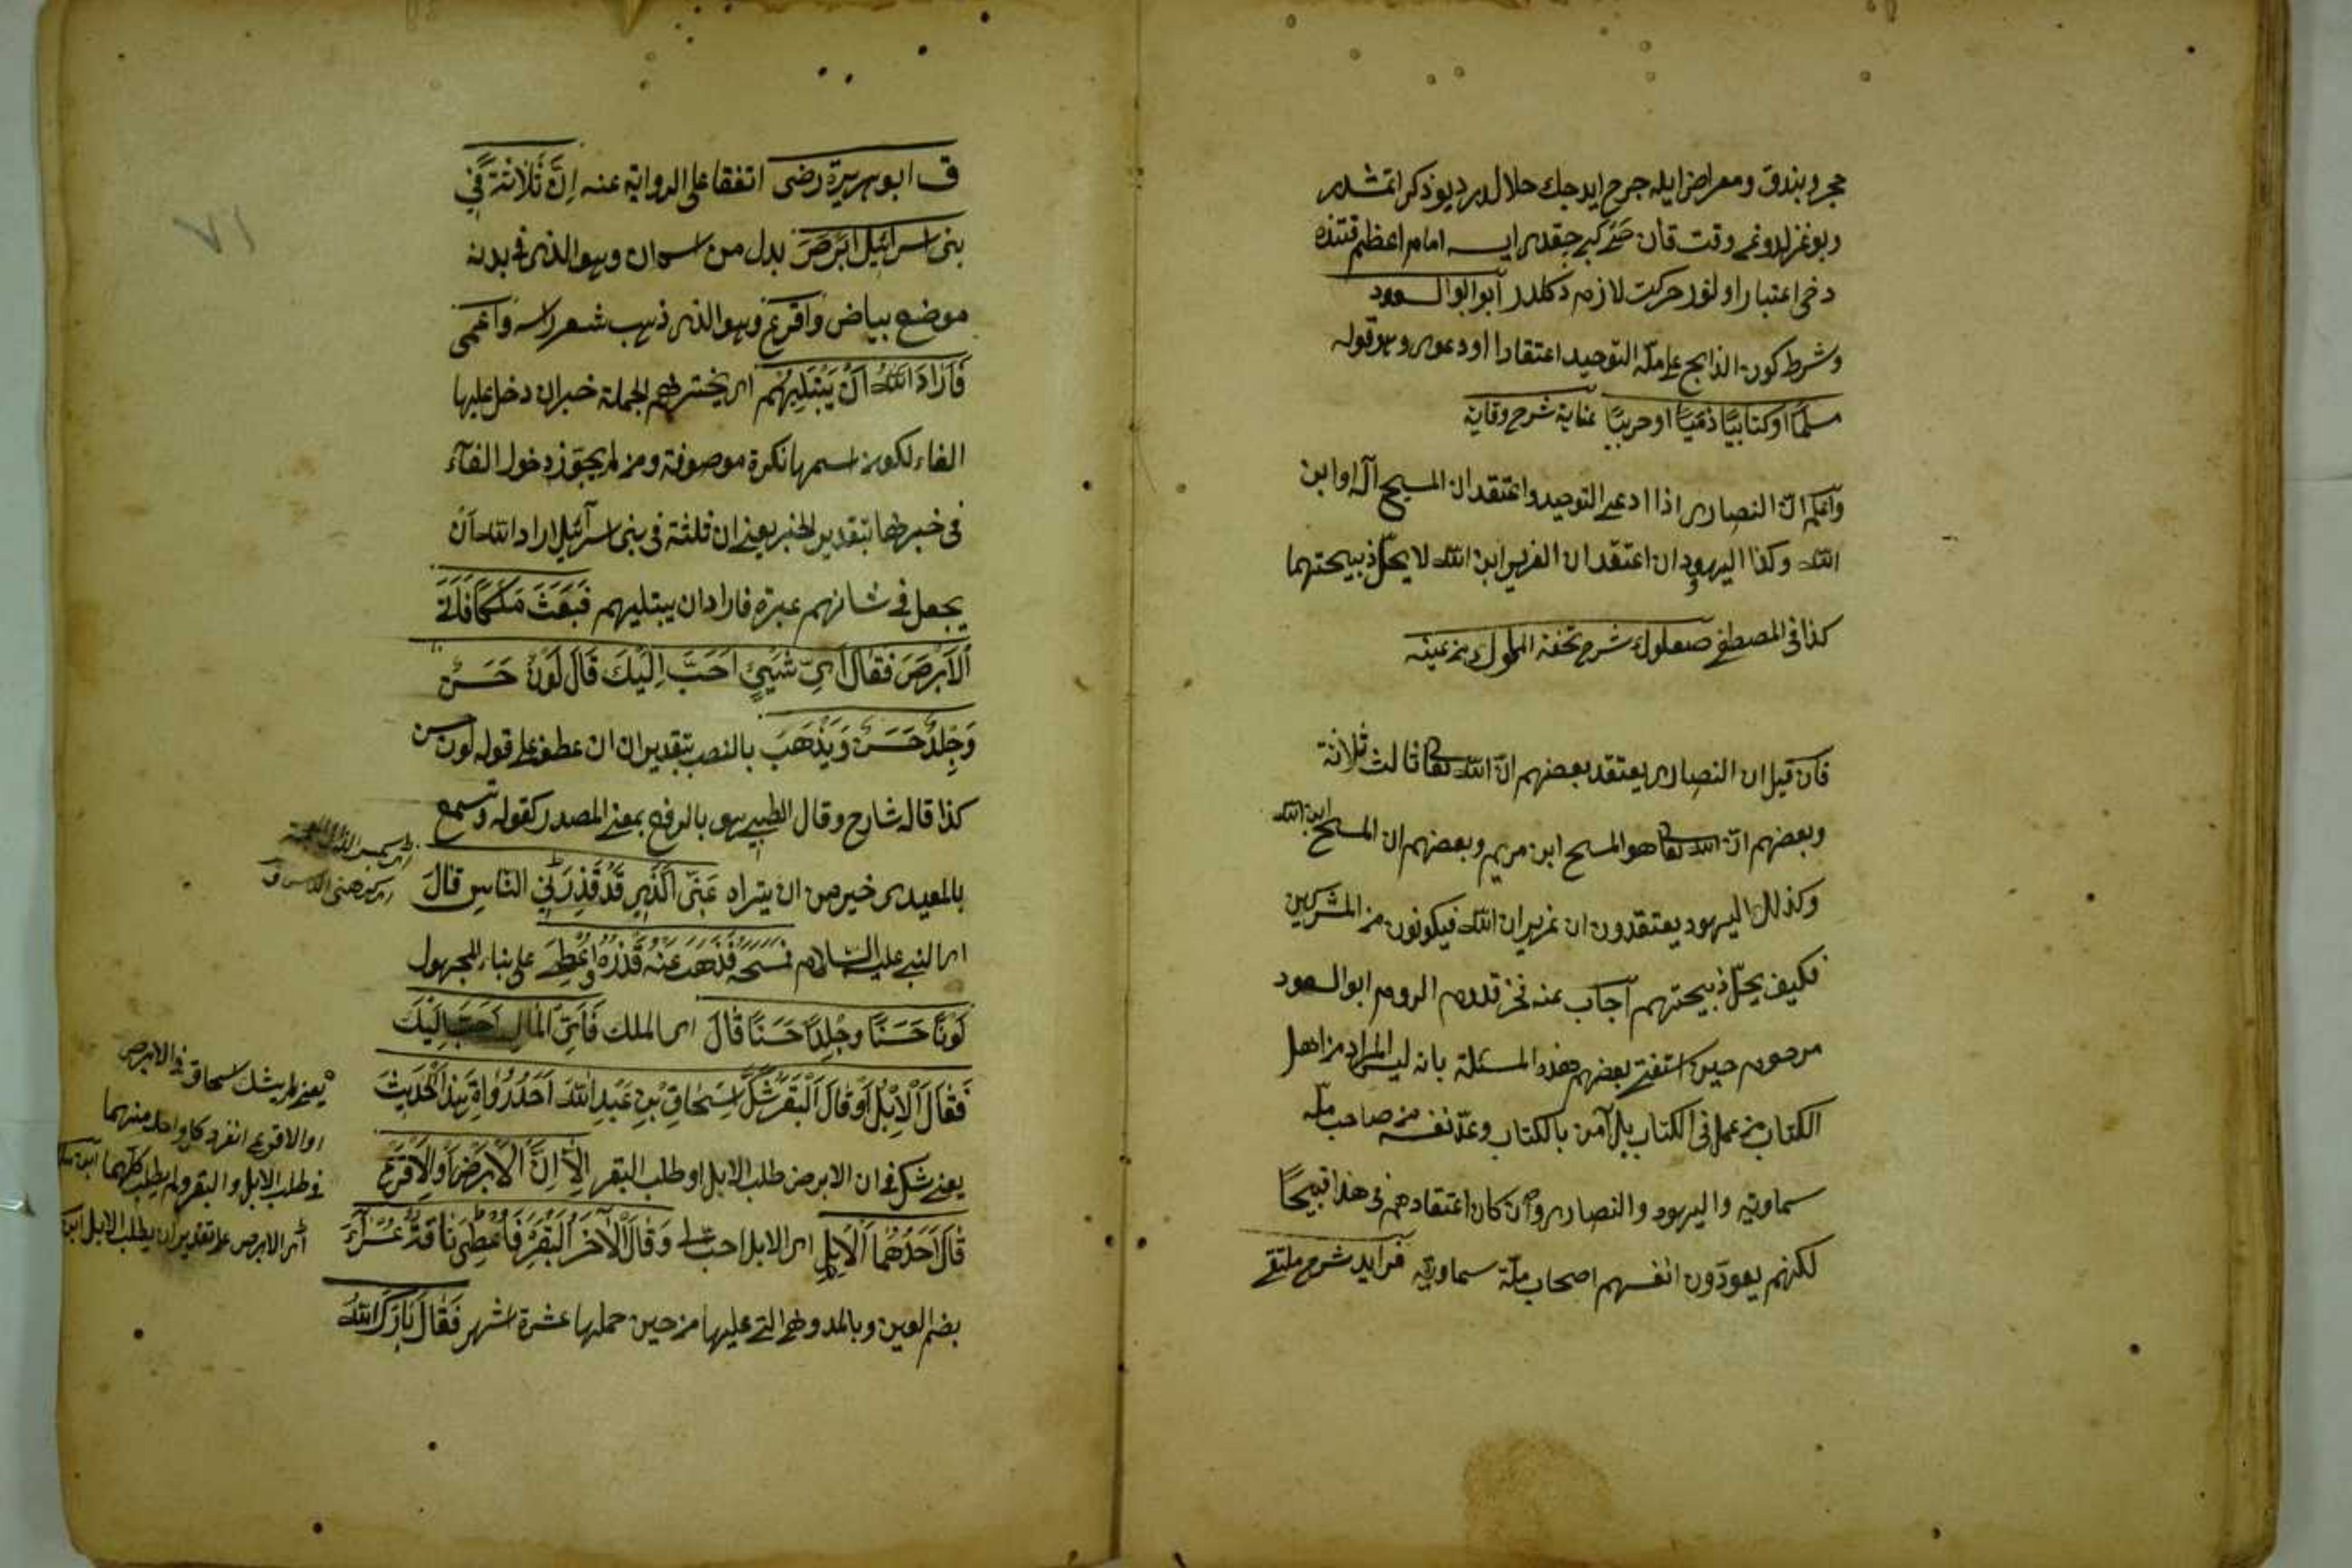 حجر و بندق و معراض ايله جرح ايدجك حلال در ديو ذكر اتمشدر
دخى اعتبار اولنور حركت لازم دكلدر ابو السعود
وشرط كون الذابح على ملة التوحيد اعتقادا او دعوى وهو قوله
مسلما او كتابيا ذميا او حربيا عناية شرح وقاية
واعلم ان النصارى اذا ادعى التوحيد واعتقد ان المسيح اله او ابن
الله وكذا اليهود ان اعتقد ان العزير ابن الله لا يحل ذبيحتهما
كذا فى المصطفى صعلوك شرح تحفة الملوك من عينه
فان قيل ان النصارى يعتقد بعضهم ان الله تعا ثالث ثلاثة
وبعضهم ان الله تعا هو المسيح ابن مريم وبعضهم ان المسيح ابن الله
وكذلك اليهود يعتقدون ان عزير ابن الله فيكونون من المشركين
فكيف يحل ذبيحتهم اجاب عنه قدوم الروم ابو السعود
مرحوم حين استفتى بعضهم هذه المسئلة بانه ليس المراد من اهل
الكتاب من عمل فى الكتاب بل آمن بالكتاب وعد نفسه من صاحب ملة
سماوية واليهود والنصارى وان كان اعتقادهم فى هذا قبيحا
لكنهم يعودون انفسهم اصحاب ملة سماوية فرايد شرح ملتقى
٧١
ق ابو هريرة رضى اتفقا على الرواية عنه اِنَّ ثَلَاثَةً فِى
بنى اسرائيل اَبْرَصَ بدل من اسم ان وهو الذى فى بدنه
موضع بياض وَاَقْرَعَ وهو الذى ذهب شعر راسه وَاَعْمَى
فَاَرَادَ اللّٰهُ اَنْ يَبْتَلِيَهُمْ اى يختبرهم الجملة خبر ان دخل عليها
الفاء لكون اسمها نكرة موصوفة ومن لم يجوّز دخول الفآء
فى خبرها بتقدير الخبر يعنى ان ثلثة فى بنى اسرآئيل اراد الله ان
يجعل فى شانهم عبرة فاراد ان يبتليهم فَبَعَثَ مَلَكًا فَاَتَى
الْاَبْرَصَ فَقَالَ اَىُّ شَيْئٍ اَحَبُّ اِلَيْكَ قَالَ لَوْنٌ حَسَنٌ
وَجِلْدٌ حَسَنٌ وَيَذْهَبَ بالنصب بتقدير ان ان عطف على قوله لون حسن
كذا قاله شارح وقال الطيبى هو بالرفع بمعنى المصدر كقوله وتسمع
بالمعيدى خير من ان يتراه عَنِّى الَّذِى قَدْ قَذِرَنِى النَّاسُ قَالَ
اى النبى عليه السّلام فَمَسَحَهُ فَذَهَبَ عَنْهُ قَذَرُهُ وَاُعْطِىَ على بناء المجهول
لَوْنًا حَسَنًا وَجِلْدًا حَسَنًا قَالَ اى الملك فَاَىُّ الْمَالِ اَحَبُّ اِلَيْكَ
فَقَالَ الْاِبِلُ اَوْ قَالَ الْبَقَرُ شَكَّ اِسْحَاقُ بْنُ عَبْدِ اللّٰهِ اَحَدُ رُوَاةِ هٰذَا الْحَدِيثِ
يعنى شك فى ان الابرص طلب الابل او طلب البقر اِلَّا اِنَّ الْاَبْرَصَ اَوِ الْاَقْرَعَ
قَالَ اَحَدُهُمَا الْاِبِلُ اى الابل احب الى وَقَالَ الْاٰخَرُ الْبَقَرُ فَاُعْطِىَ نَاقَةً عُشَرَآءَ
بضم العين وبالمد وهى التى عليها من حين حملها عشرة اشهر فَقَالَ بَارَكَ اللّٰهُ
يعنى لم يشك اسحاق فى الابرص
او الاقرع انفرد كل واحد منهما
فى طلب الابل والبقر ولم يطلب كلهما
اى الابرص على تقدير ان يطلب الابل